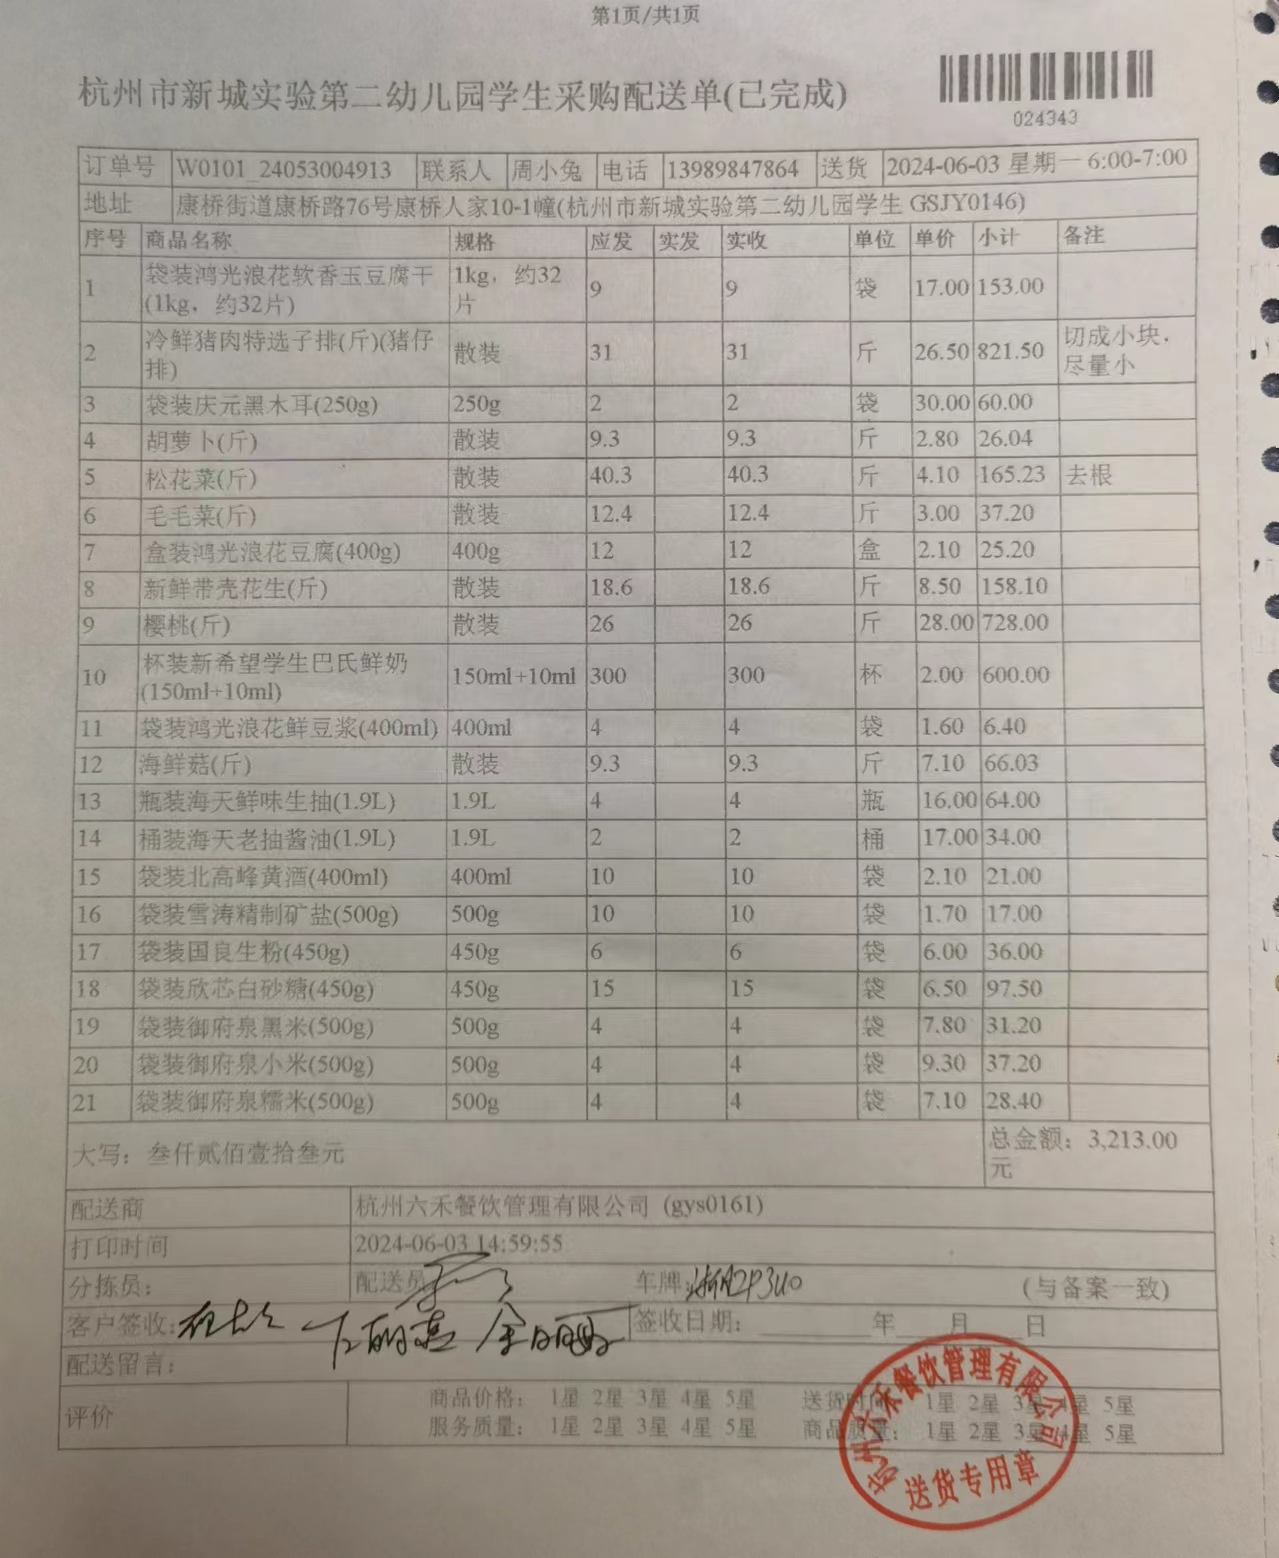 第1页/共1页
杭州市新城实验第二幼儿园学生采购配送单(已完成)
024343
订单号 W0101_24053004913 联系人 周小兔 电话 13989847864 送货 2024-06-03 星期一 6:00-7:00
地址 康桥街道康桥路76号康桥人家10-1幢(杭州市新城实验第二幼儿园学生 GSJY0146)
序号 商品名称 规格 应发 实发 实收 单位 单价 小计 备注
1 袋装鸿光浪花软香玉豆腐干(1kg，约32片) 1kg，约32片 9 9 袋 17.00 153.00
2 冷鲜猪肉特选子排(斤)(猪仔排) 散装 31 31 斤 26.50 821.50 切成小块，尽量小
3 袋装庆元黑木耳(250g) 250g 2 2 袋 30.00 60.00
4 胡萝卜(斤) 散装 9.3 9.3 斤 2.80 26.04
5 松花菜(斤) 散装 40.3 40.3 斤 4.10 165.23 去根
6 毛毛菜(斤) 散装 12.4 12.4 斤 3.00 37.20
7 盒装鸿光浪花豆腐(400g) 400g 12 12 盒 2.10 25.20
8 新鲜带壳花生(斤) 散装 18.6 18.6 斤 8.50 158.10
9 樱桃(斤) 散装 26 26 斤 28.00 728.00
10 杯装新希望学生巴氏鲜奶(150ml+10ml) 150ml+10ml 300 300 杯 2.00 600.00
11 袋装鸿光浪花鲜豆浆(400ml) 400ml 4 4 袋 1.60 6.40
12 海鲜菇(斤) 散装 9.3 9.3 斤 7.10 66.03
13 瓶装海天鲜味生抽(1.9L) 1.9L 4 4 瓶 16.00 64.00
14 桶装海天老抽酱油(1.9L) 1.9L 2 2 桶 17.00 34.00
15 袋装北高峰黄酒(400ml) 400ml 10 10 袋 2.10 21.00
16 袋装雪涛精制矿盐(500g) 500g 10 10 袋 1.70 17.00
17 袋装国良生粉(450g) 450g 6 6 袋 6.00 36.00
18 袋装欣芯白砂糖(450g) 450g 15 15 袋 6.50 97.50
19 袋装御府泉黑米(500g) 500g 4 4 袋 7.80 31.20
20 袋装御府泉小米(500g) 500g 4 4 袋 9.30 37.20
21 袋装御府泉糯米(500g) 500g 4 4 袋 7.10 28.40
大写：叁仟贰佰壹拾叁元 总金额：3,213.00元
配送商 杭州六禾餐饮管理有限公司 (gys0161)
打印时间 2024-06-03 14:59:55
分拣员： 配送员 车牌: (与备案一致)
客户签收: 签收日期： 年 月 日
配送留言：
评价 商品价格： 1星 2星 3星 4星 5星 送货时间： 1星 2星 3星 4星 5星
服务质量： 1星 2星 3星 4星 5星 商品质量： 1星 2星 3星 4星 5星
杭州六禾餐饮管理有限公司
送货专用章